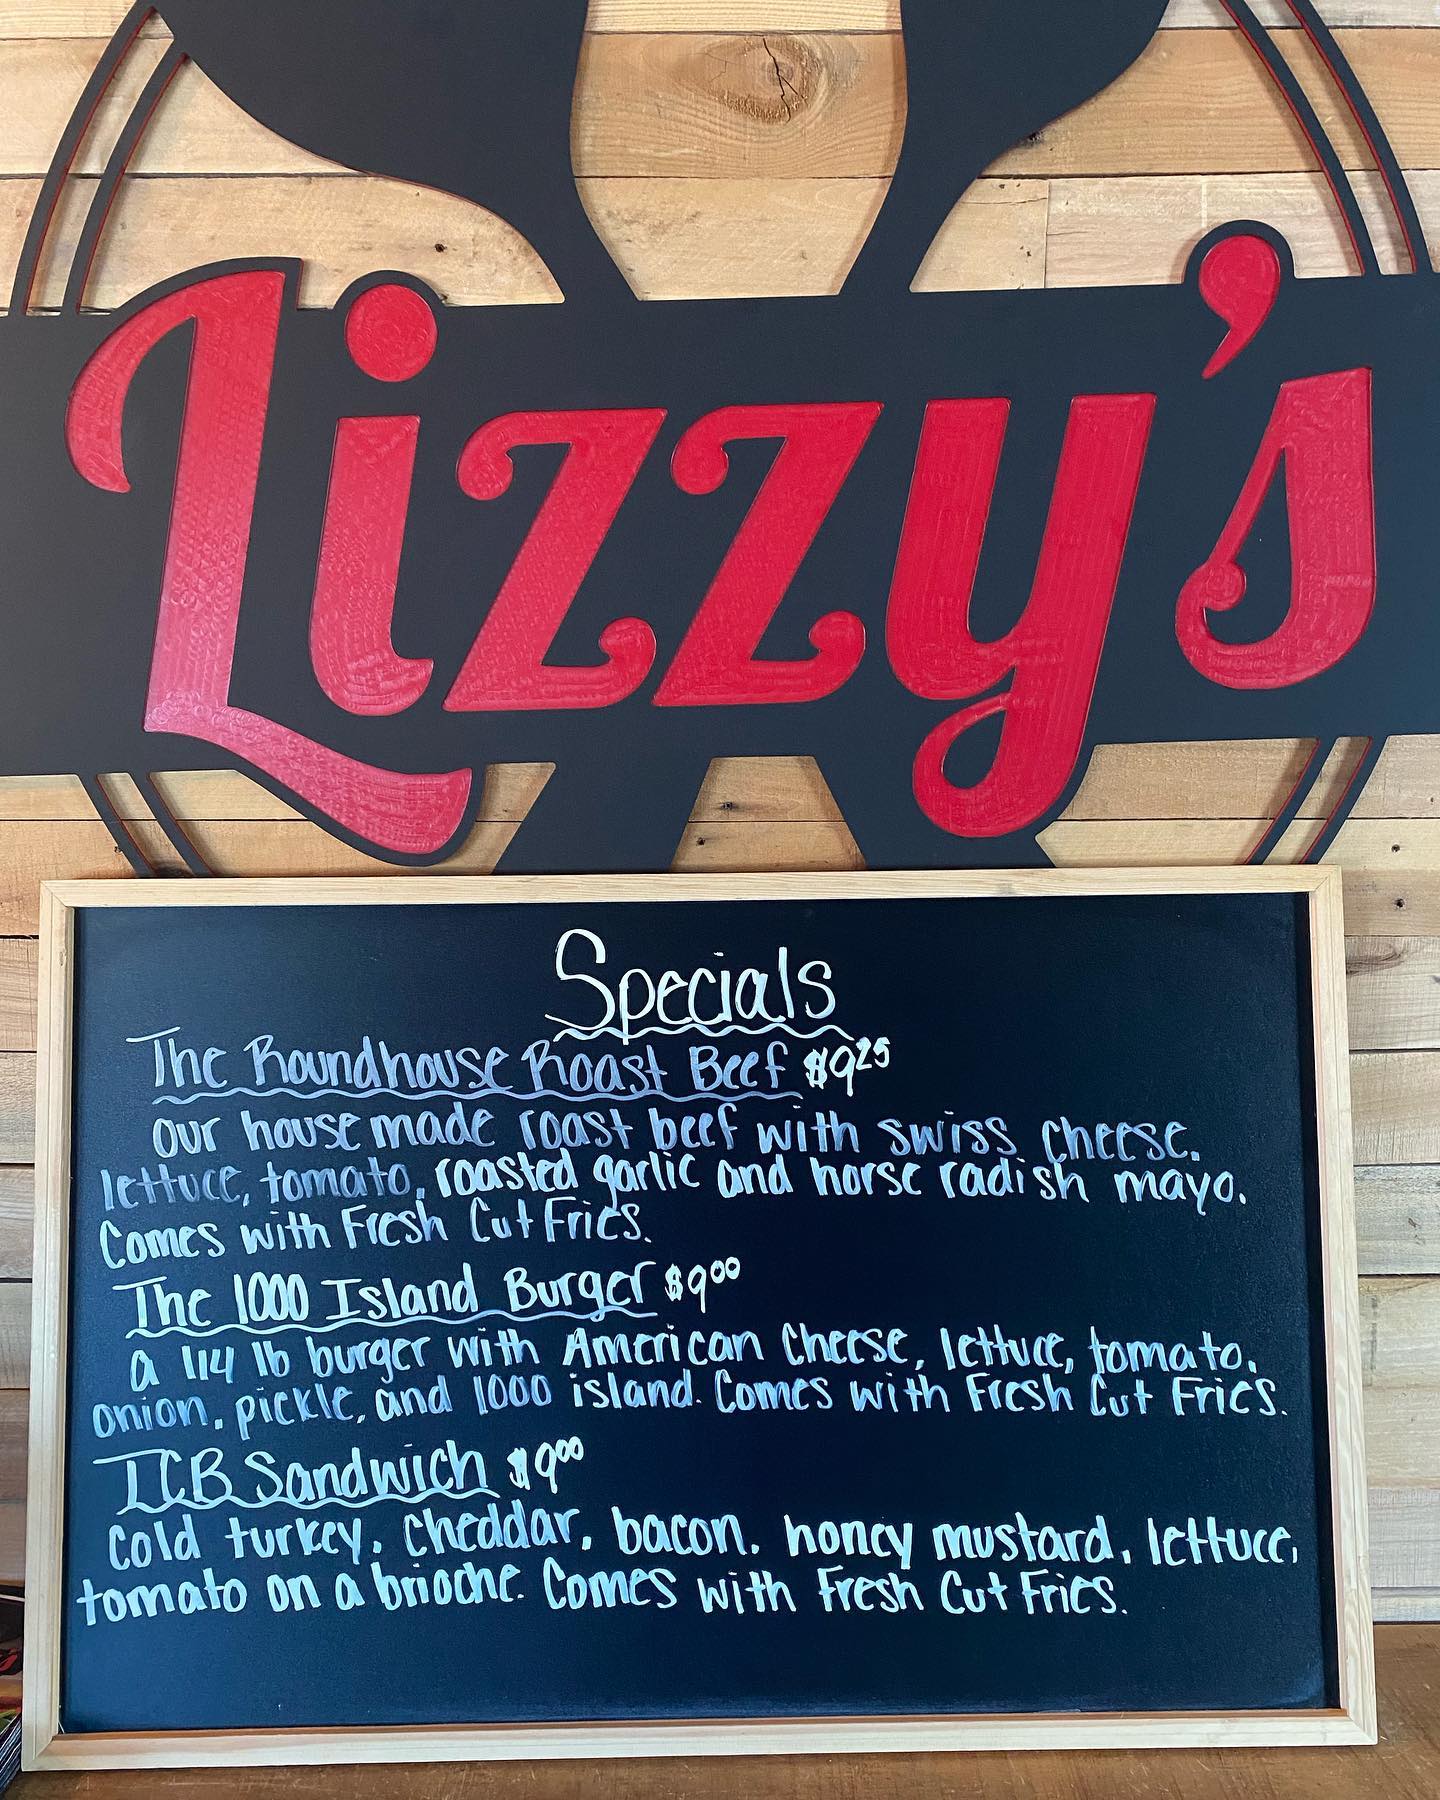 Lizzy's
Specials
The Roundhouse Roast Beef $9.25
our house made roast beef with swiss cheese,
lettuce, tomato, roasted garlic and horse radish mayo.
Comes with Fresh Cut Fries.
The 1000 Island Burger $9.00
a 1/4 lb burger with American Cheese, lettuce, tomato,
onion, pickle, and 1000 island. Comes with Fresh Cut Fries.
TCB Sandwich $9.00
Cold turkey, cheddar, bacon, honey mustard, lettuce,
tomato on a brioche. Comes with Fresh Cut Fries.